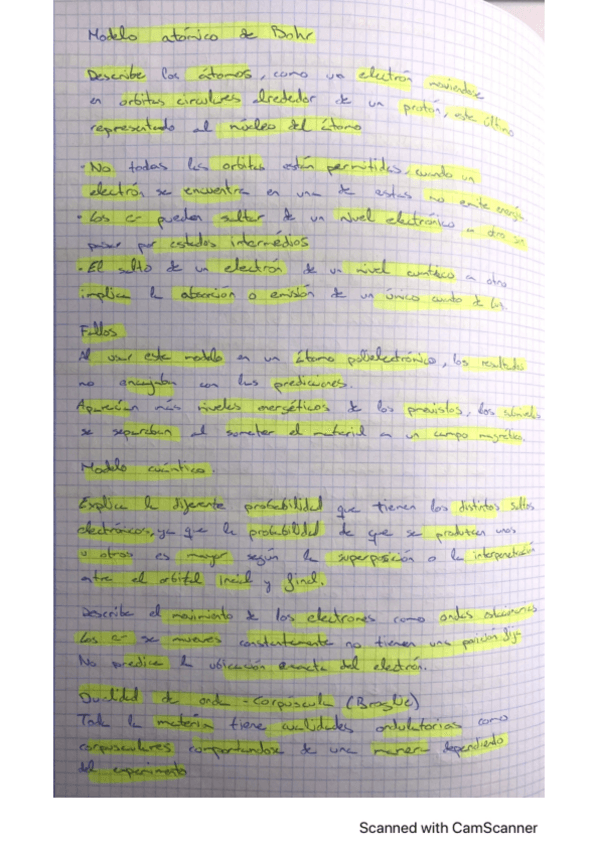 Modelo atómico de Bohr
Describe los átomos, como un electrón moviendose
en orbitas circulares alrededor de un protón, este último
representado al núcleo del átomo
-No todas las orbitas están permitidas, cuando un
electrón se encuentra en una de estas no emite energía
• Los e- pueden saltar de un nivel electrónico a otro sin
pasar por estados intermedios
•El salto de un electron de un nivel cuántico a otro
implica la absorción o emisión de un único cuanto de luz.
Fallos
Al usar este modelo en un átomo polielectrónico, los resultados
no encajaban con las predicciones.
Aparecían más niveles energéticos de los previstos, los
se separaban al someter el material a un campo magnético.
Modelo cuántico.
Explica la diferente probabilidad que tienen los distintos saltos
electrónicos, ya que la probabilidad de que se produzcan unos
u otros es mayor según la superposición o la interpenetración
entre el orbital inicial y final.
Describe el movimiento de los electrones como ondas estacionarias
Los e- se mueven constantemente no tienen una posición fija
No predice la ubicación exacta del electrón.
Dualidad de onda-corpuscula (Broglie)
Toda la materia tiene cualidades ondulatorias como
corpusculares comportandose de una manera dependiendo
del experimento
Scanned with CamScanner